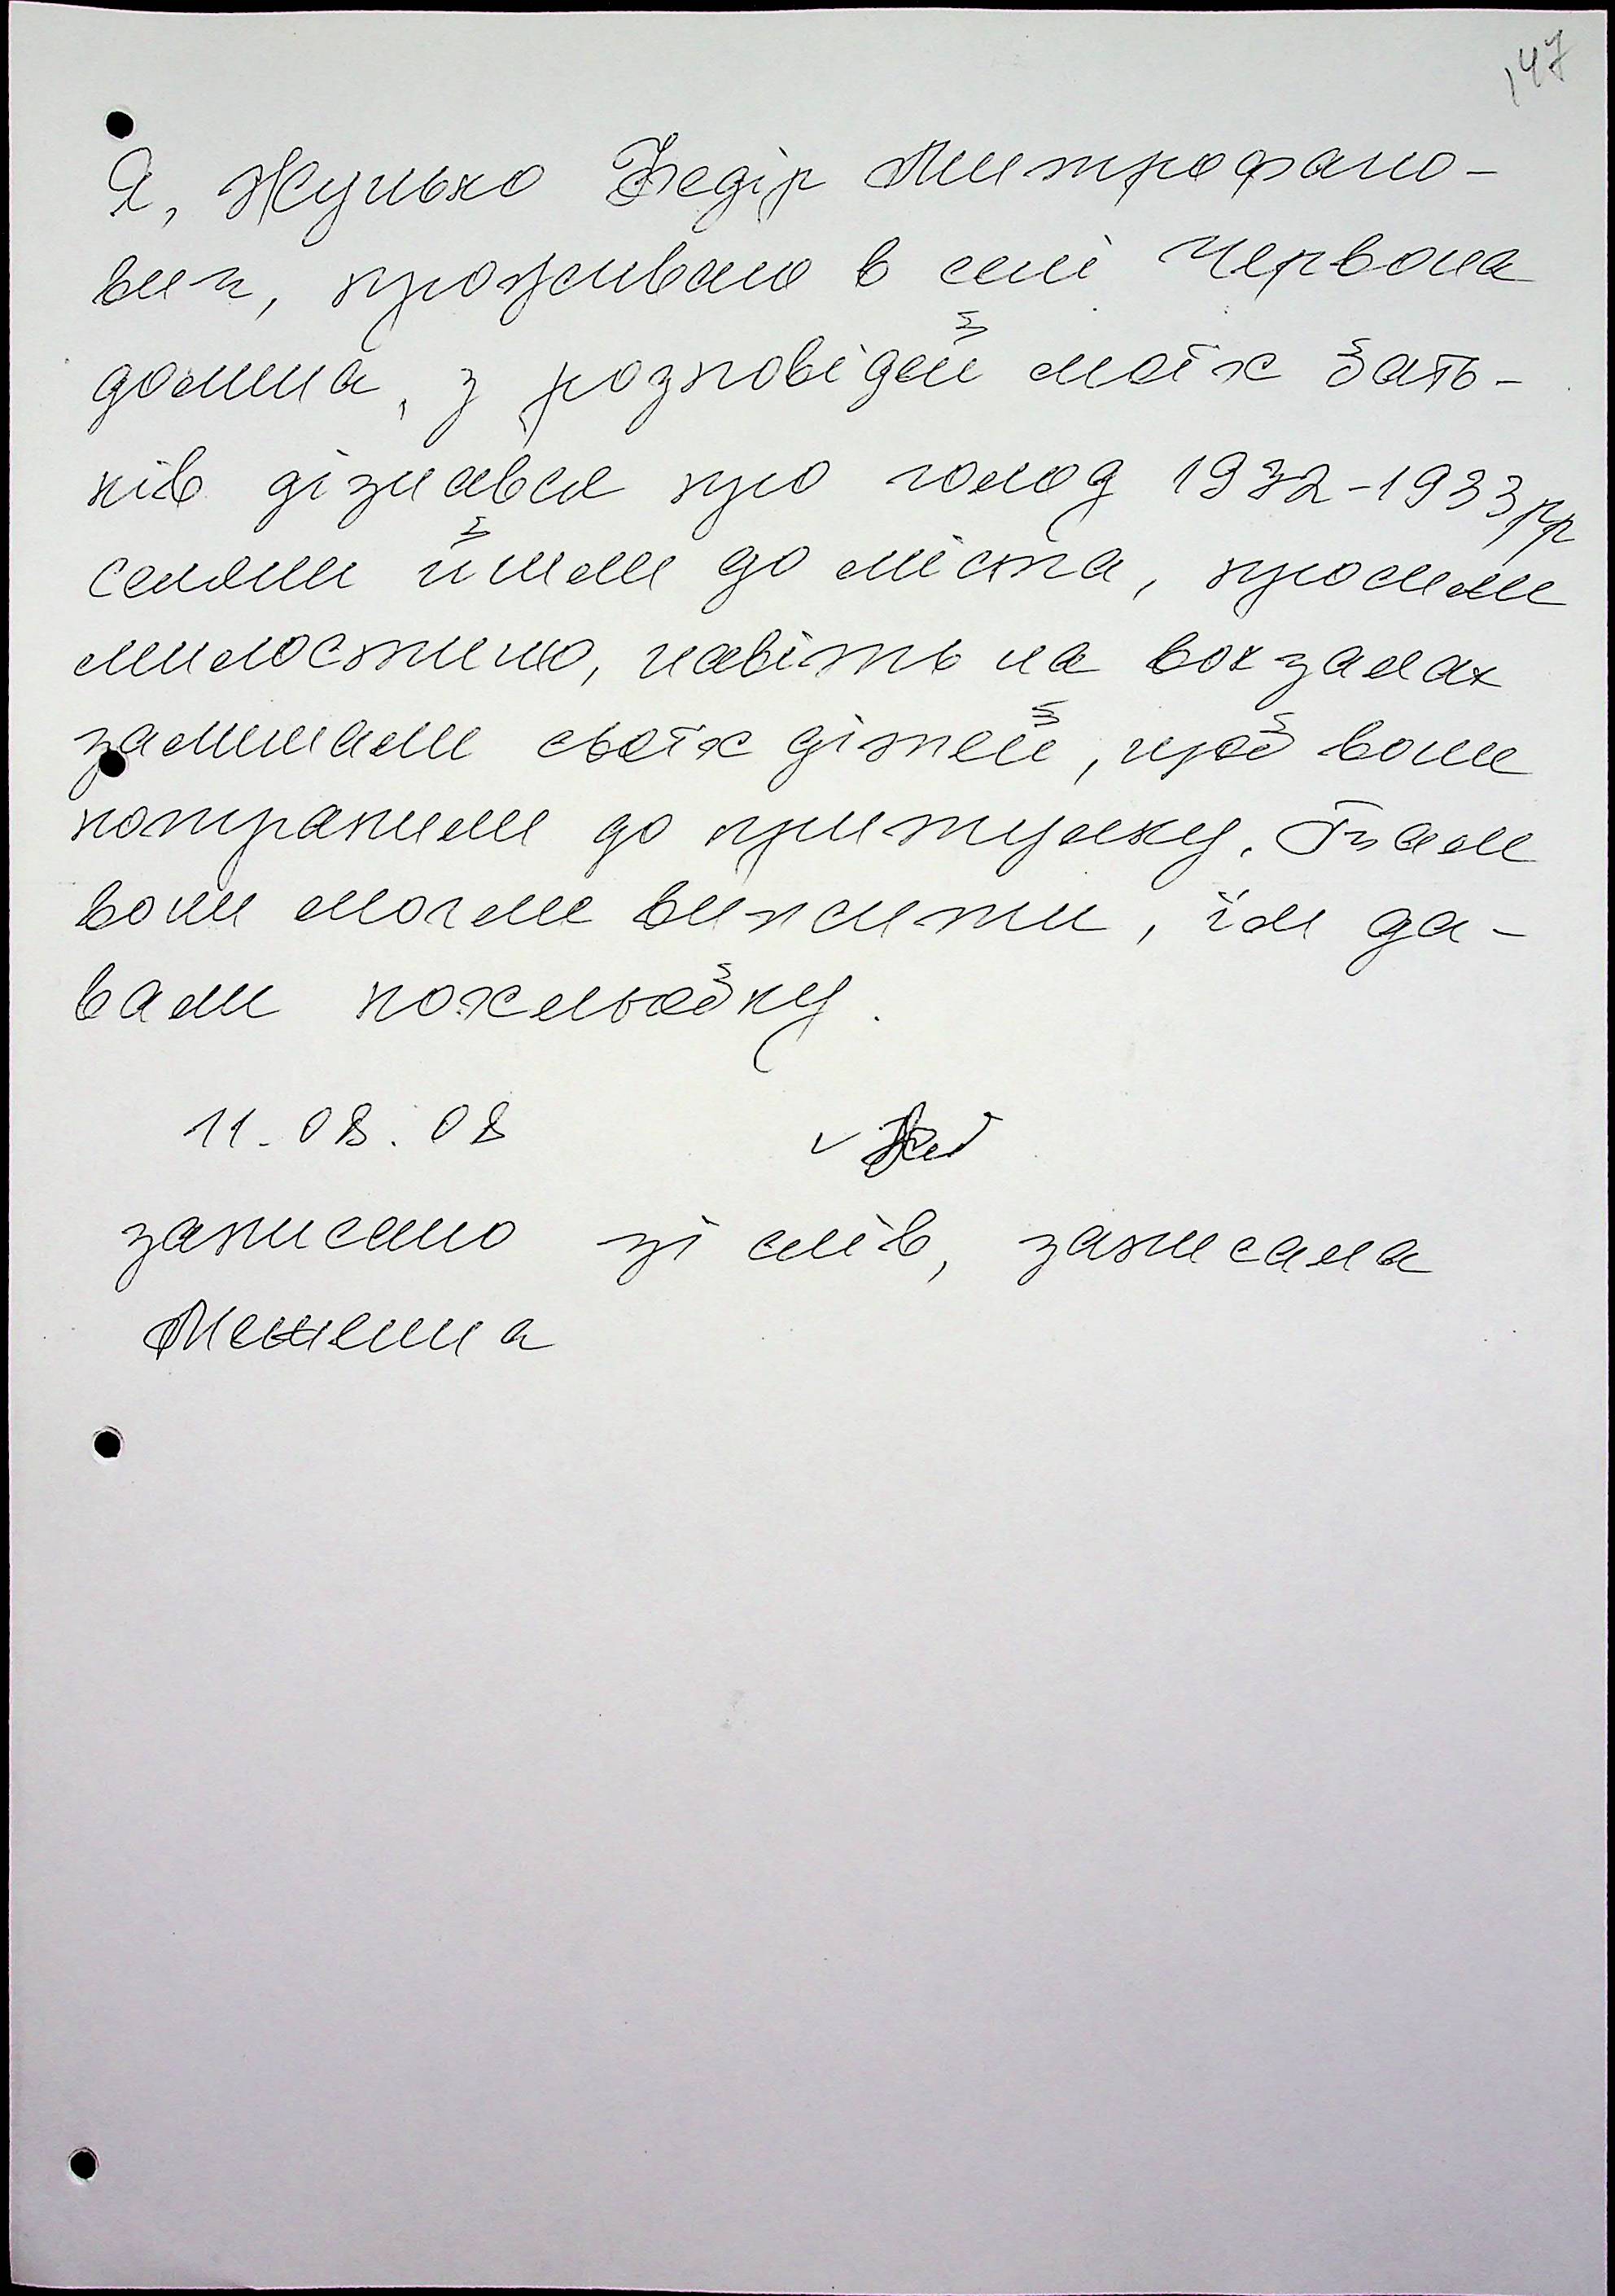 147
Я, Жулько Федір Митрофано-
вич, проживаю в селі Червона
долина, з розповідей моїх бать-
ків дізнався про голод 1932-1933рр
селяни йшли до міста, просили
милостиню, навіть на вокзалах
залишали своїх дітей, щоб вони
потрапили до притулку. Там
вони могли вижити, їм да-
вали похльобку.
11.08.08
записано зі слів, записала